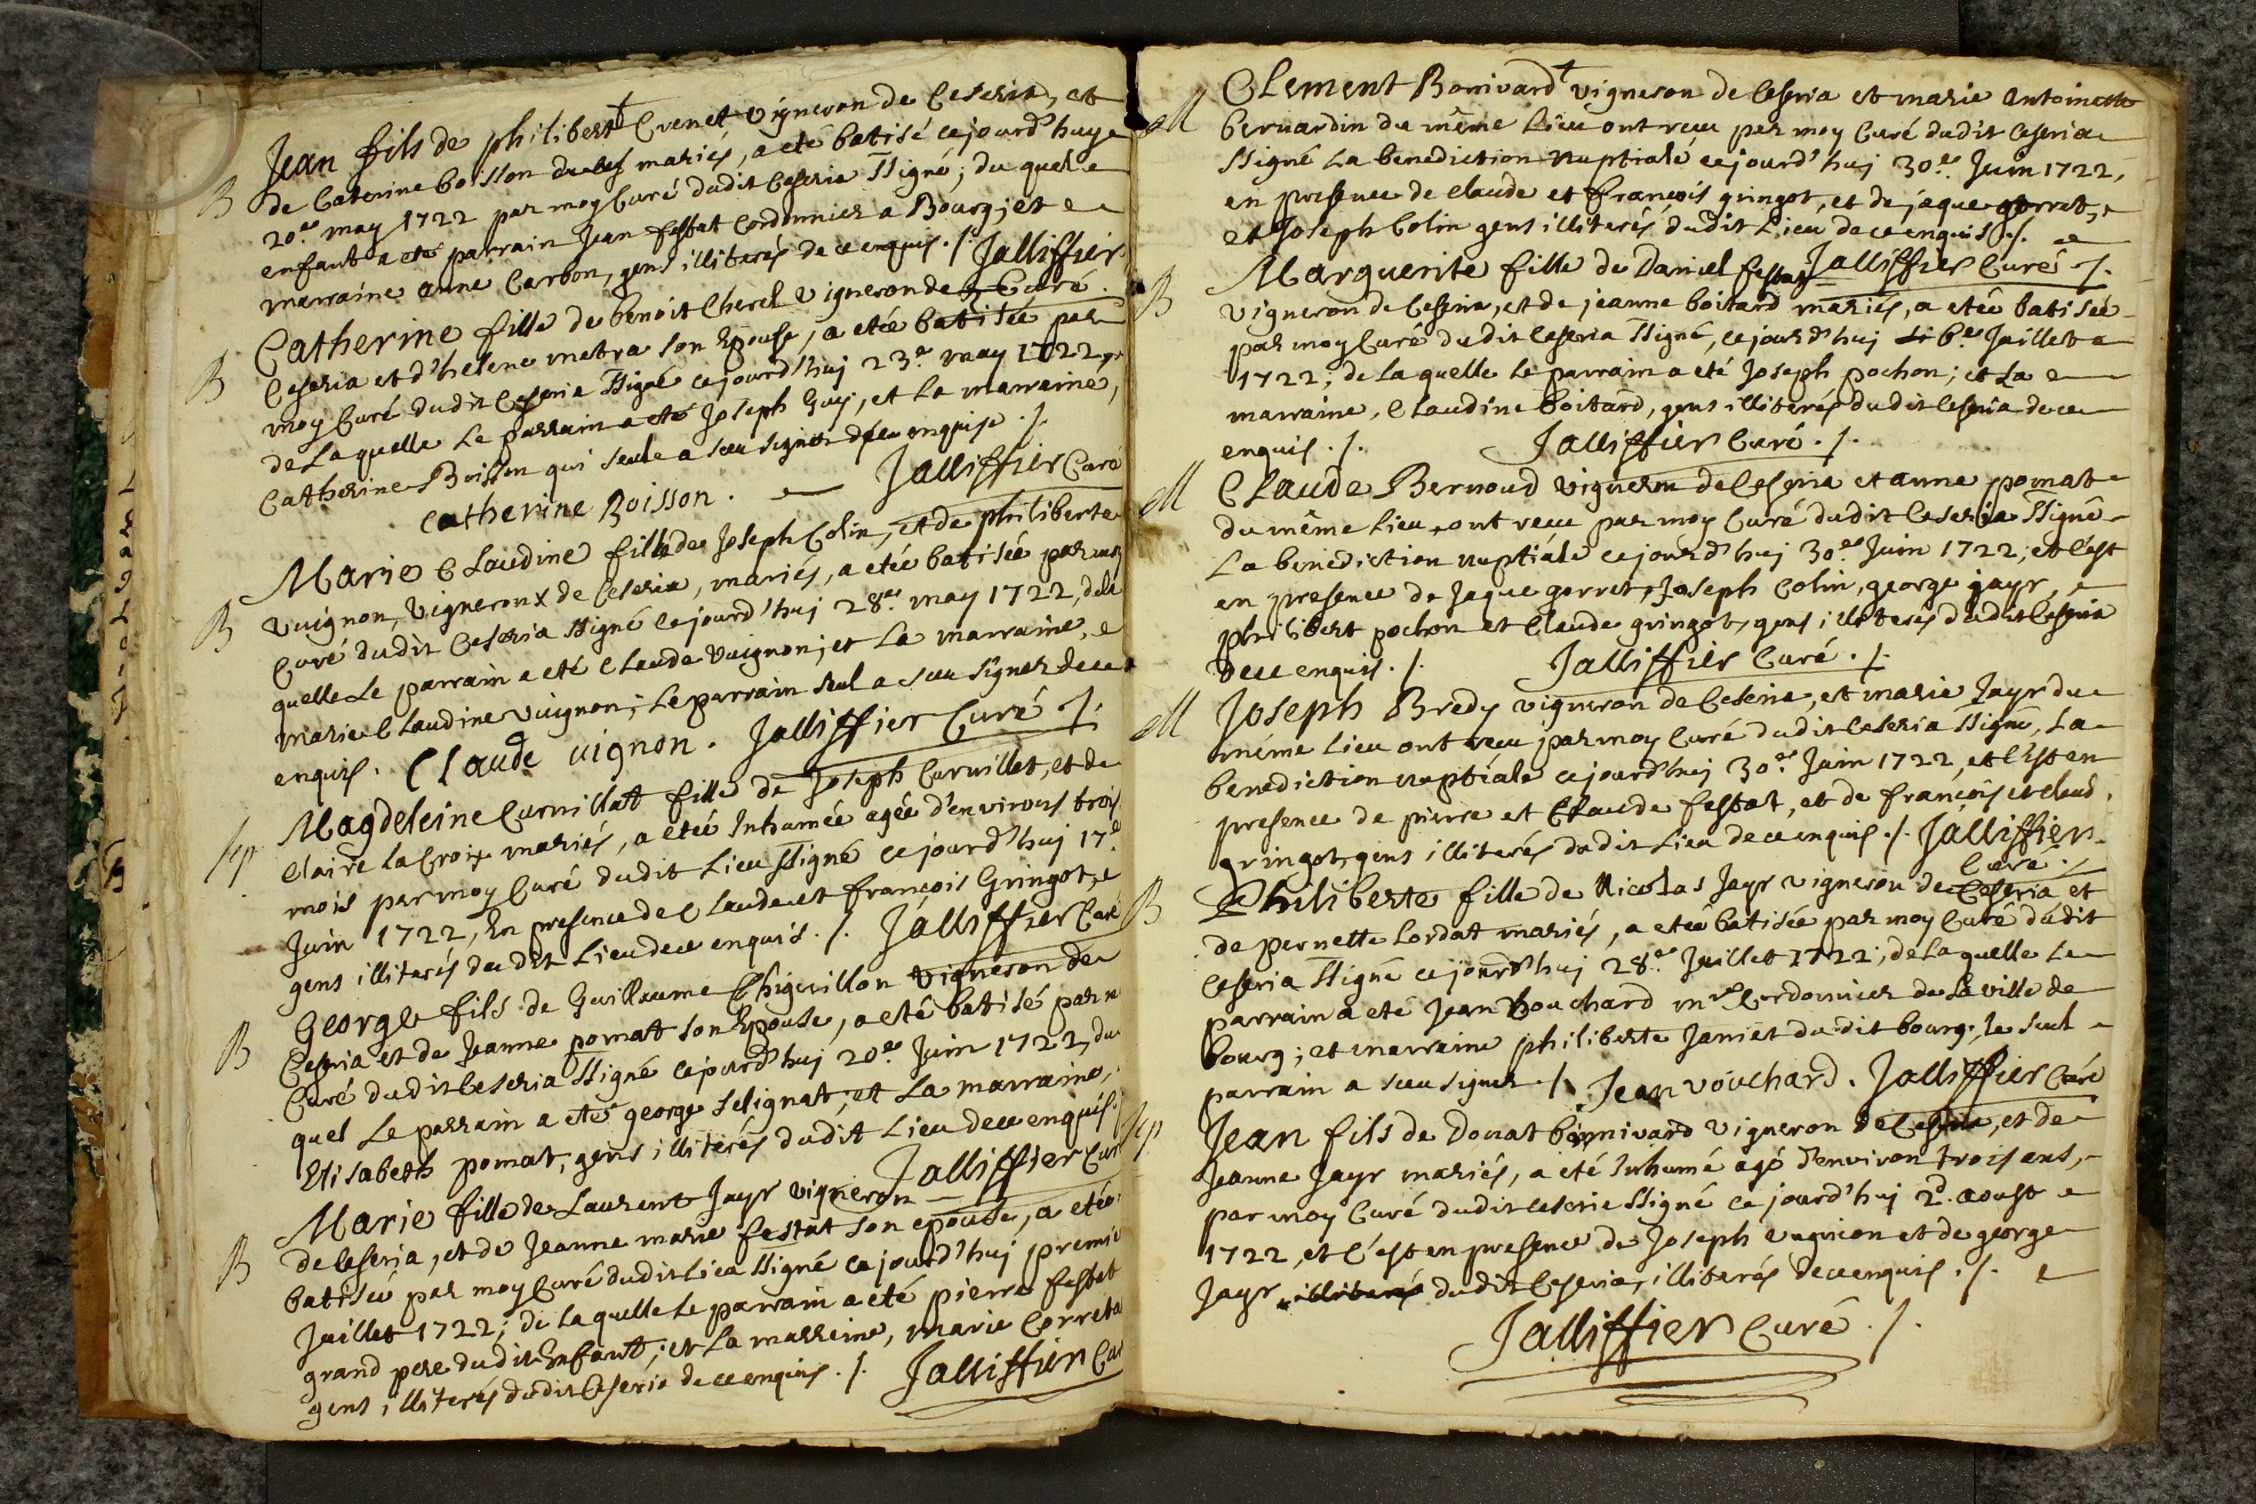 Jean fils de philibert Crenet vigneron de Ceseria, et
B
de Caterine boisson mariés, a eté batisé cejourd'huy
20.e may 1722 par moy Curé dudit Ceseria ssigné; du quel
enfant a eté parrain Jean festat Cordonnier a Bourg; et
marraine anne Carbon, gens illiterés de ce enquis ./. Jalliffier
Curé.
Catherine fille de benoit Cherel vigneron de
B
Ceseria et d'helene metra son Epouse, a etée batisée par
moy Curé dudit Ceseria ssigné cejourd'huj 23.e may 1722,
de Laquelle Le parrain a eté Joseph Guy, et La marraine,
Catherine Boisson qui seule a sceu signer de ce enquise ./.
Catherine Boisson. Jalliffier Curé
Marie Claudine fille de Joseph Colin, et de philiberte
B
vuignon, vigneronx de Ceseria, mariés, a etée batisée par moy
Curé dudit Ceseria ssigné cejourd'huj 28.e may 1722, de la
quelle Le parrain a eté Claude vuignon; et La marraine,
marie Claudine vuignon; Le parrain seul a sceu signer de ce
enquis. Claude uignon. Jalliffier Curé ./.
Magdeleine Curnillat fille de Joseph Curnillet, et de
Sep
Claire La Croix mariés, a etée Inhumée agée d'environs trois
mois par moy Curé dudit Lieu ssigné ce jourd'huj 17.e
Juin 1722, En presence de Claude et françois Gringot,
gens illiterés dudit Lieu de ce enquis ./. Jalliffier Curé
George fils de Guillaume Chigevillon vigneron de
B
Ceseria et de Jeanne pomat son Epouse, a eté batisé par m
Curé dudit Ceseria ssigné cejourd'huj 20.e Juin 1722, du
quel Le parrain a eté george selignat; et La marraine,
Elisabeth pomat, gens illiterés dudit Lieu de ce enquis
Jalliffier Curé
Marie fille de Laurent Jayr vigneron
B
de Ceseria, et de Jeanne marie festat son epouse, a etée
batisée par moy Curé dudit Lieu ssigné ce jourd'huj premie
Juillet 1722; de Laquelle Le parrain a eté pierre festat
grand pere dudit Enfant; et La marreine, marie Correta
gens illiterés dudit Ceseria de ce enquis ./. Jalliffier Cur
M
Clement Bonivard vigneron de Ceseria et marie antoinette
bernardin du même Lieu ont receu par moy Curé dudit Ceseria
ssigné La benediction nuptiale cejourd'huj 30.e Juin 1722,
en presence de claude et françois gringot, et de jaque gorret,
et Joseph Colin gens illiterés dudit Lieu de ce enquis ./.
Jalliffier Curé ./.
B
Marguerite fille de Daniel festat
vigneron de Ceseria, et de jeanne boitard mariés, a etée batisée
par moy Curé dudit Ceseria ssigné, cejourd'huj Juillet
1722; de Laquelle Le parrain a eté Joseph pochon; et La
marraine, Claudine boitard, gens illiterés dudit Ceseria de ce
enquis ./. Jalliffier Curé ./.
M
Claude Bernoud vigneron de Ceseria et anne pomat
du même Lieu, ont receu par moy Curé dudit Ceseria ssigné
La benediction nuptiale cejourd'huj 30.e Juin 1722; et c'est
en presence de Jaque gorret, Joseph Colin, george jayr,
philibert pochon et Claude gringot, gens illiterés dudit Ceseria
de ce enquis ./. Jalliffier Curé ./.
M
Joseph Bredy vigneron de Ceseria, et marie Jayr du
même Lieu ont receu par moy Curé dudit Ceseria ssigné, La
benediction nuptiale cejourd'huj 30.e Juin 1722, et c'est en
presence de pierre et Claude festat, et de françois et claud.
gringot, gens illiterés dudit Lieu de ce enquis ./. Jalliffier
Curé ./.
B
Philiberte fille de Nicolas Jayr vigneron de Ceseria et
de pernette Lordat mariés, a etée batisée par moy Curé dudit
Ceseria ssigné cejourd'huj 28.e Juillet 1722; de Laquelle Le
parrain a eté Jean vouchard m.re Cordonnier de La ville de
bourg; et marraine philiberte Janiet dudit bourg, Le seul
parrain a sceu signer ./. Jean vouchard. Jalliffier Curé
Sep
Jean fils de Donat bonnivard vigneron de Ceseria, et de
Jeanne Jayr mariés, a eté Inhumé agé d'environ trois ans,
par moy Curé dudit Ceserie ssigné ce jourd'huj 2.d aoust
1722, et C'est en presence de Joseph vugnion et de george
Jayr, illiterés dudit Ceseria, illiterés de ce enquis ./.
Jalliffier Curé ./.